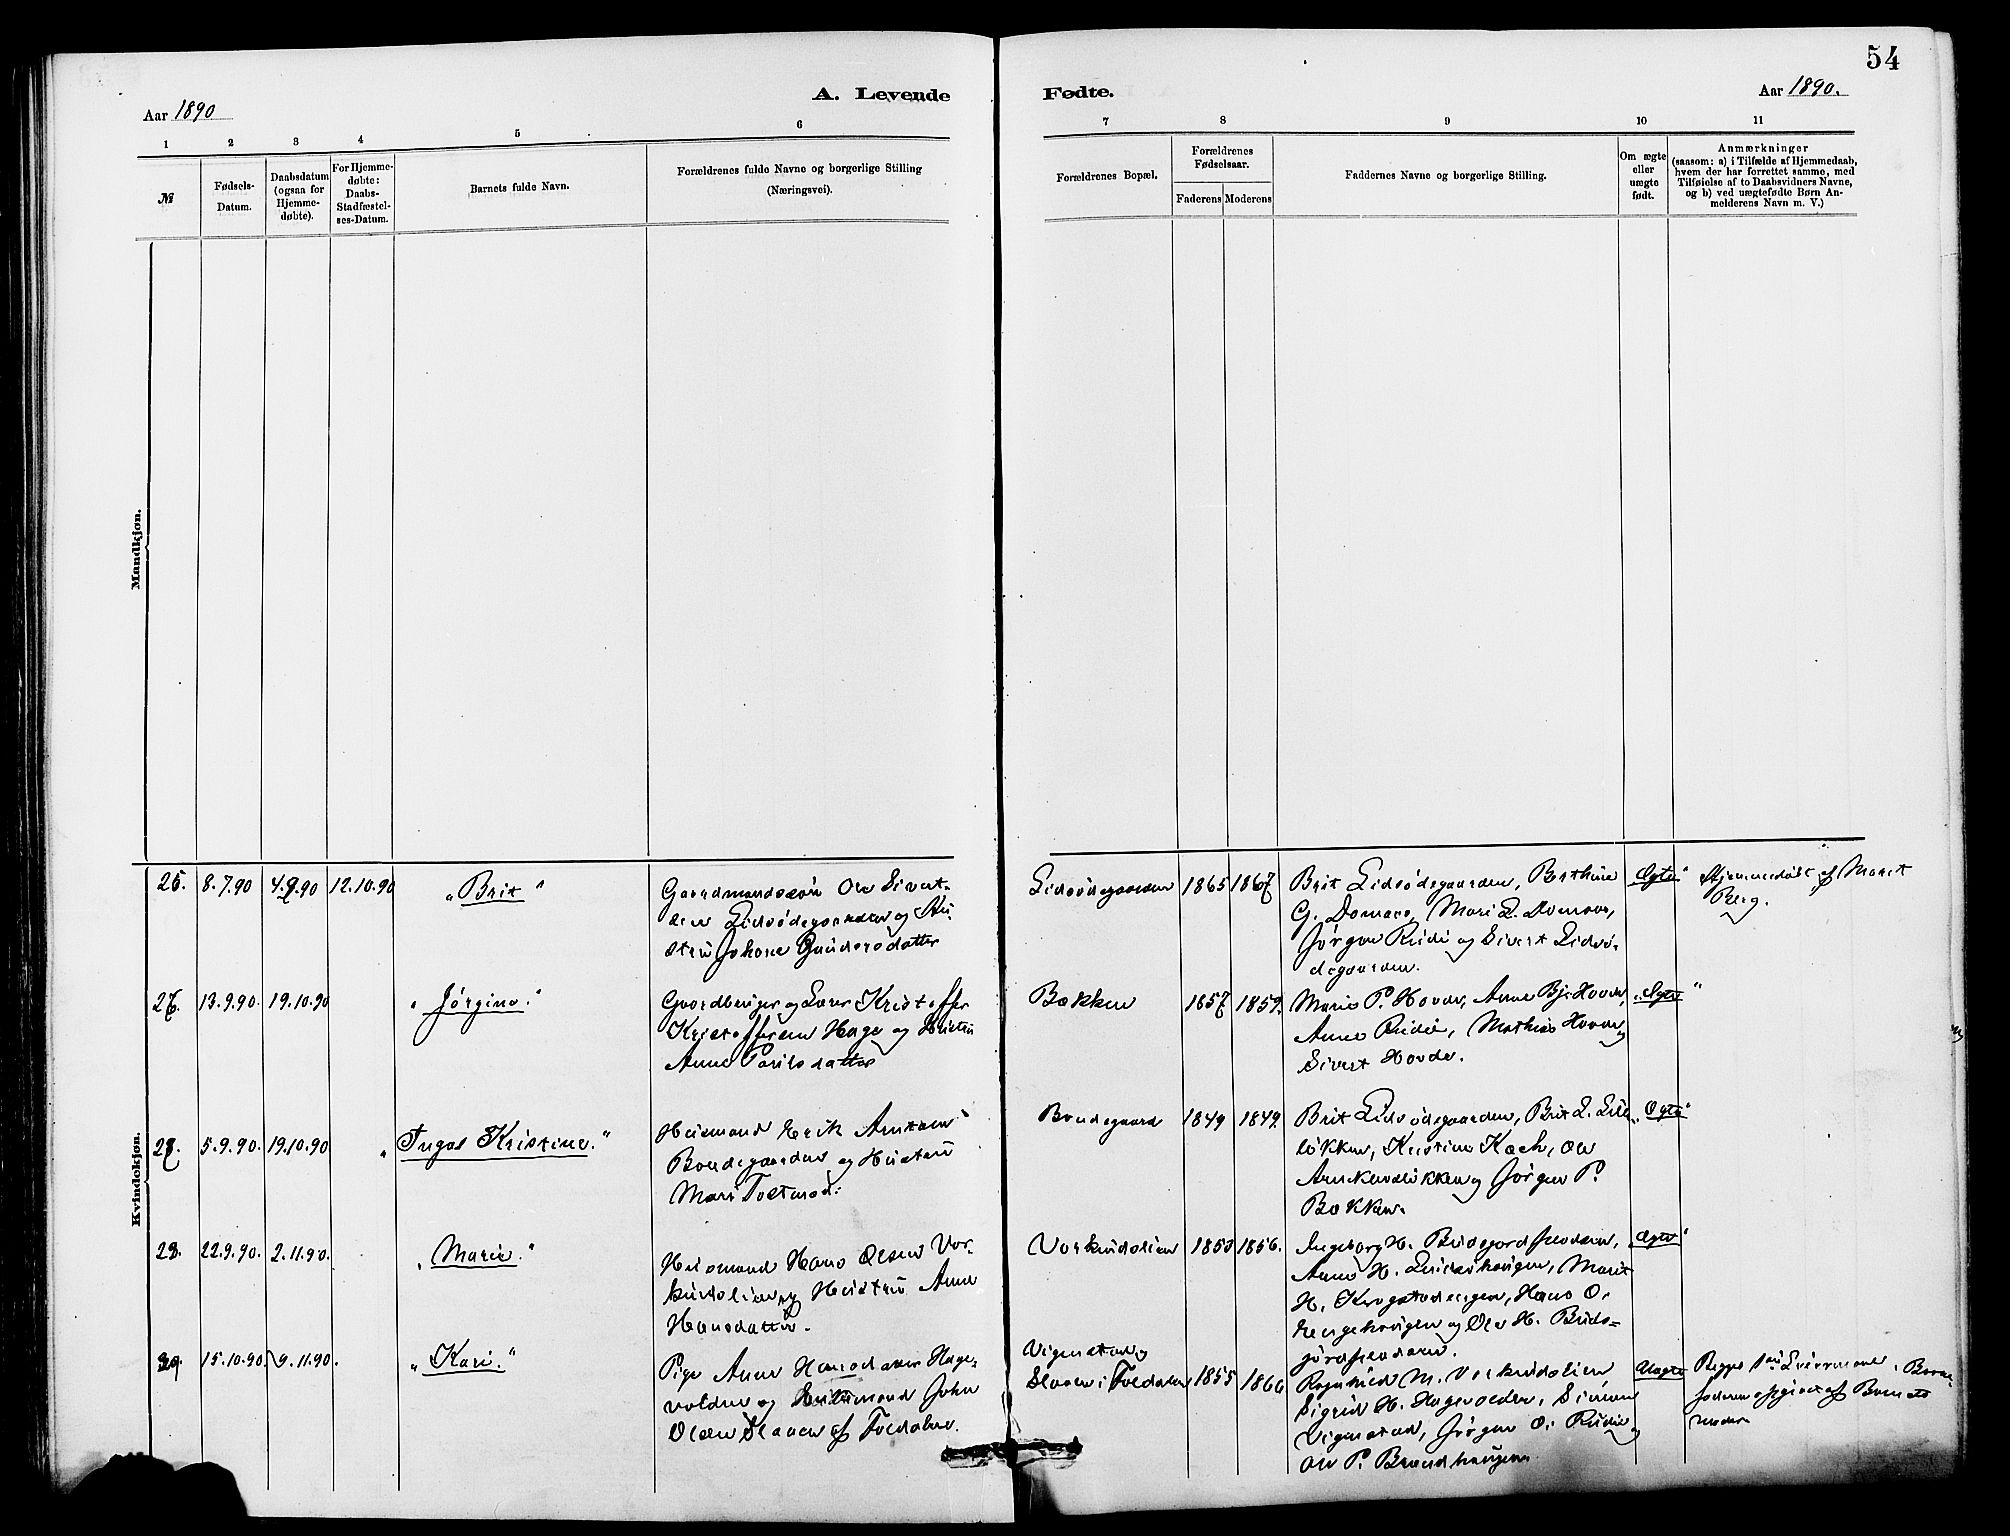 54
Aar 1890
A. Levende
Fødte.
Aar 1890.
1 2 3 4 5 6
7 8 9 10 11
№
Fødsels-
Datum.
Daabsdatum
(ogsaa for
Hjemme-
døbte).
For Hjemme-
døbte:
Daabs-
Stadfæstel-
ses-Datum.
Barnets fulde Navn.
Forældrenes fulde Navne og borgerlige Stilling
(Næringsvei).
Forældrenes Bopæl.
Forældrenes
Fødselsaar.
Faderens Moderens
Faddernes Navne og borgerlige Stilling.
Om ægte
eller
uægte
født.
Anmærkninger
(saasom: a) i Tilfælde af Hjemmedaab,
hvem der har forrettet samme, med
Tilføielse af to Daabsvidners Navne,
og b) ved uægtefødte Børn An-
melderens Navn m. V.)
Mandkjøn.
Kvindekjøn.
25. 8.7.90 4.9.90 12.10.90
"Brit"
Gaardmandssøn Ole Sivert-
sen Lidsødegaarden og Hu-
stru Johane Gundersdatter
Lidsødegaarden 1865 1867
Brit Lidsødegaarden, Berthine
G. Domaas, Mari L. Domaas,
Jørgen Rudi og Sivert Lidsø-
degaarden.
Ægte"
Hjemmedøbt af Marit
Berg.
26. 13.9.90. 19.10.90
"Jørgine."
Gaardbruger og Lærer Kristoffer
Kristoffersen Hage og Hustru
Anne Poulsdatter
Bakken 1857 1859.
Marie P. Hovde, Anne Bj. Hovde
Anne Rudi, Mathias Hovde og
Sivert Hovde.
"Ægte"
27. 5.9.90. 19.10.90
"Inga Kristine."
Husmand Erik Arnesen
Bondegaarden og Hustru
Mari Tostensd:
Bondegaard 1849 1849.
Brit Lidsødegaarden, Brit L. Lille-
løkken, Kristine Koch, Ole
og Jørgen P.
Bakken.
"Ægte"
28. 22.9.90. 2.11.90.
"Marie."
Husmand Hans Olsen Vor-
kinslien og Hustru Anne
Hansdatter.
Vorkinslien 1850 1856.
Ingeborg H.
Anne H. Marit
H. Hans O.
og Ole H. Buds-
"Ægte"
29. 15.10.90 9.11.90.
"Kari."
Pige Anne Hansdatter Hage-
volden og Husmand John
Olsen Slaaen af Foldalen.
Vigenstad og
Slaaen i Foldalen 1855 1866
Ragnhild M. Vorkinslien
Sigrid H. Hagevolden, Simen
Vigenstad, Jørgen O. Rudi og
Ole P. Brændhaugen
Uægte
Barne-
faderen opgivet af Barnets
moder